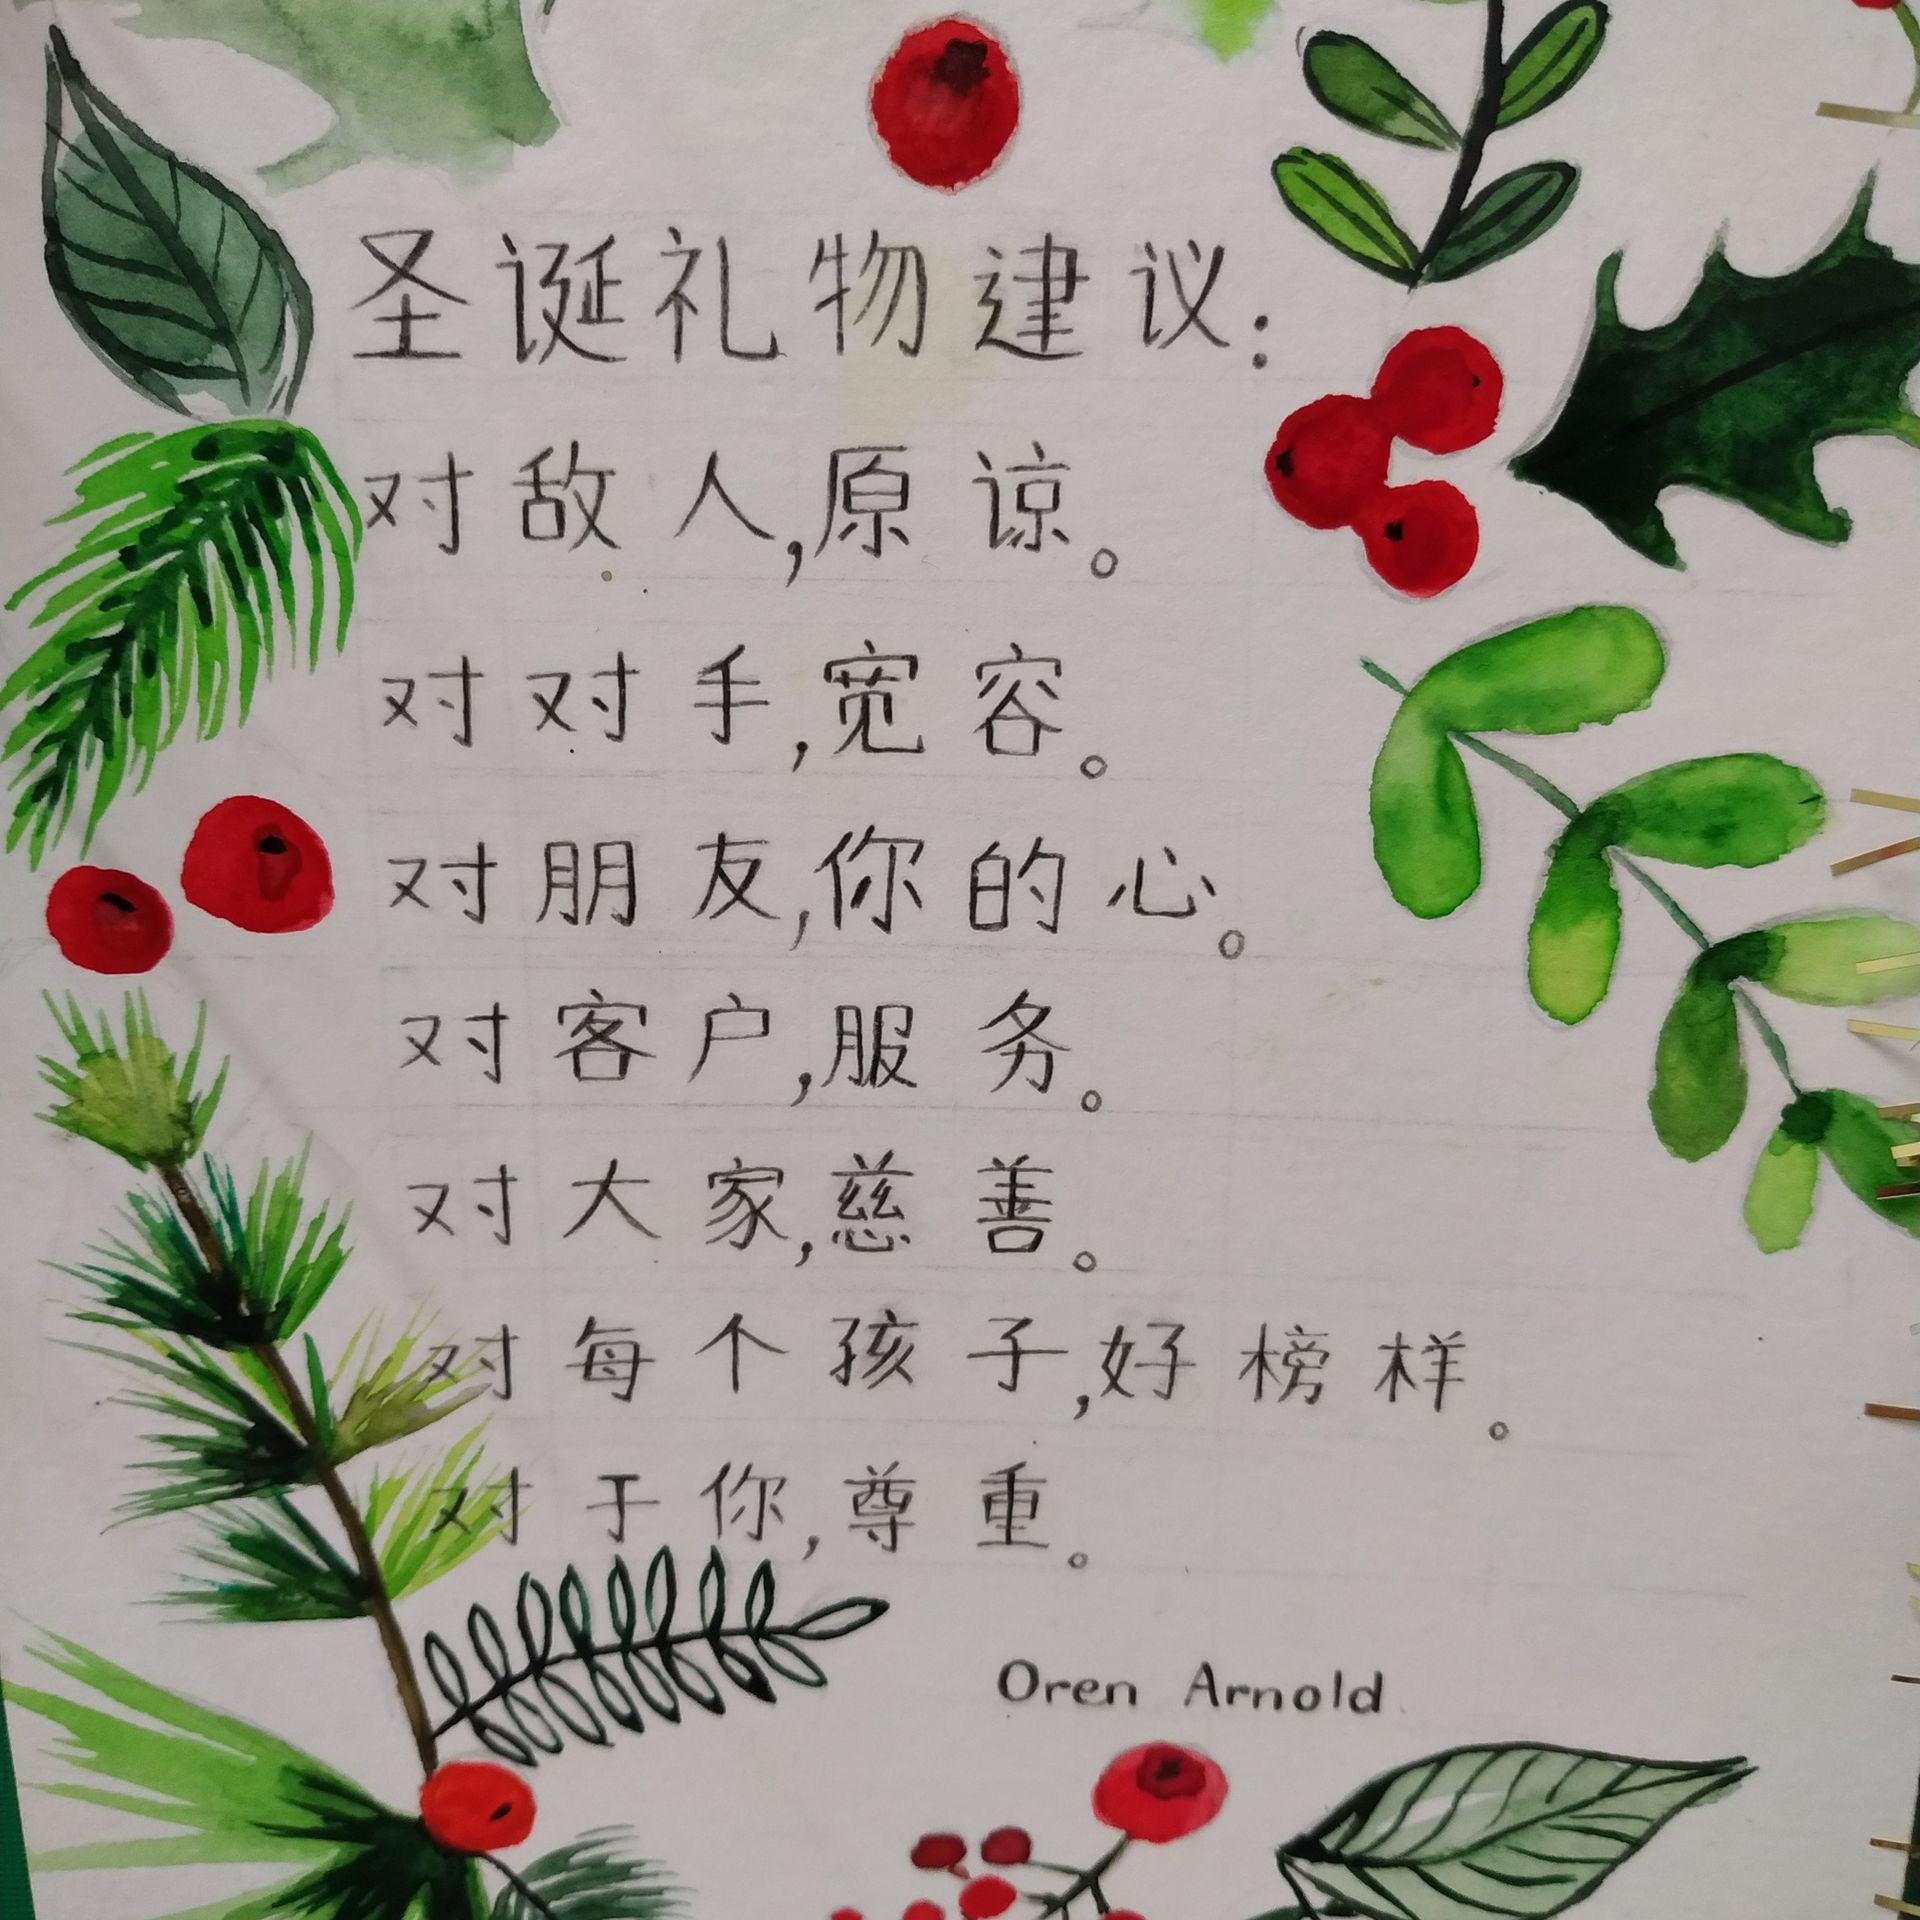 圣诞礼物建议:
对敌人,原谅。
对对手,宽容。
对朋友,你的心。
对客户,服务。
对大家,慈善。
对每个孩子,好榜样。
对于你,尊重。
Oren Arnold